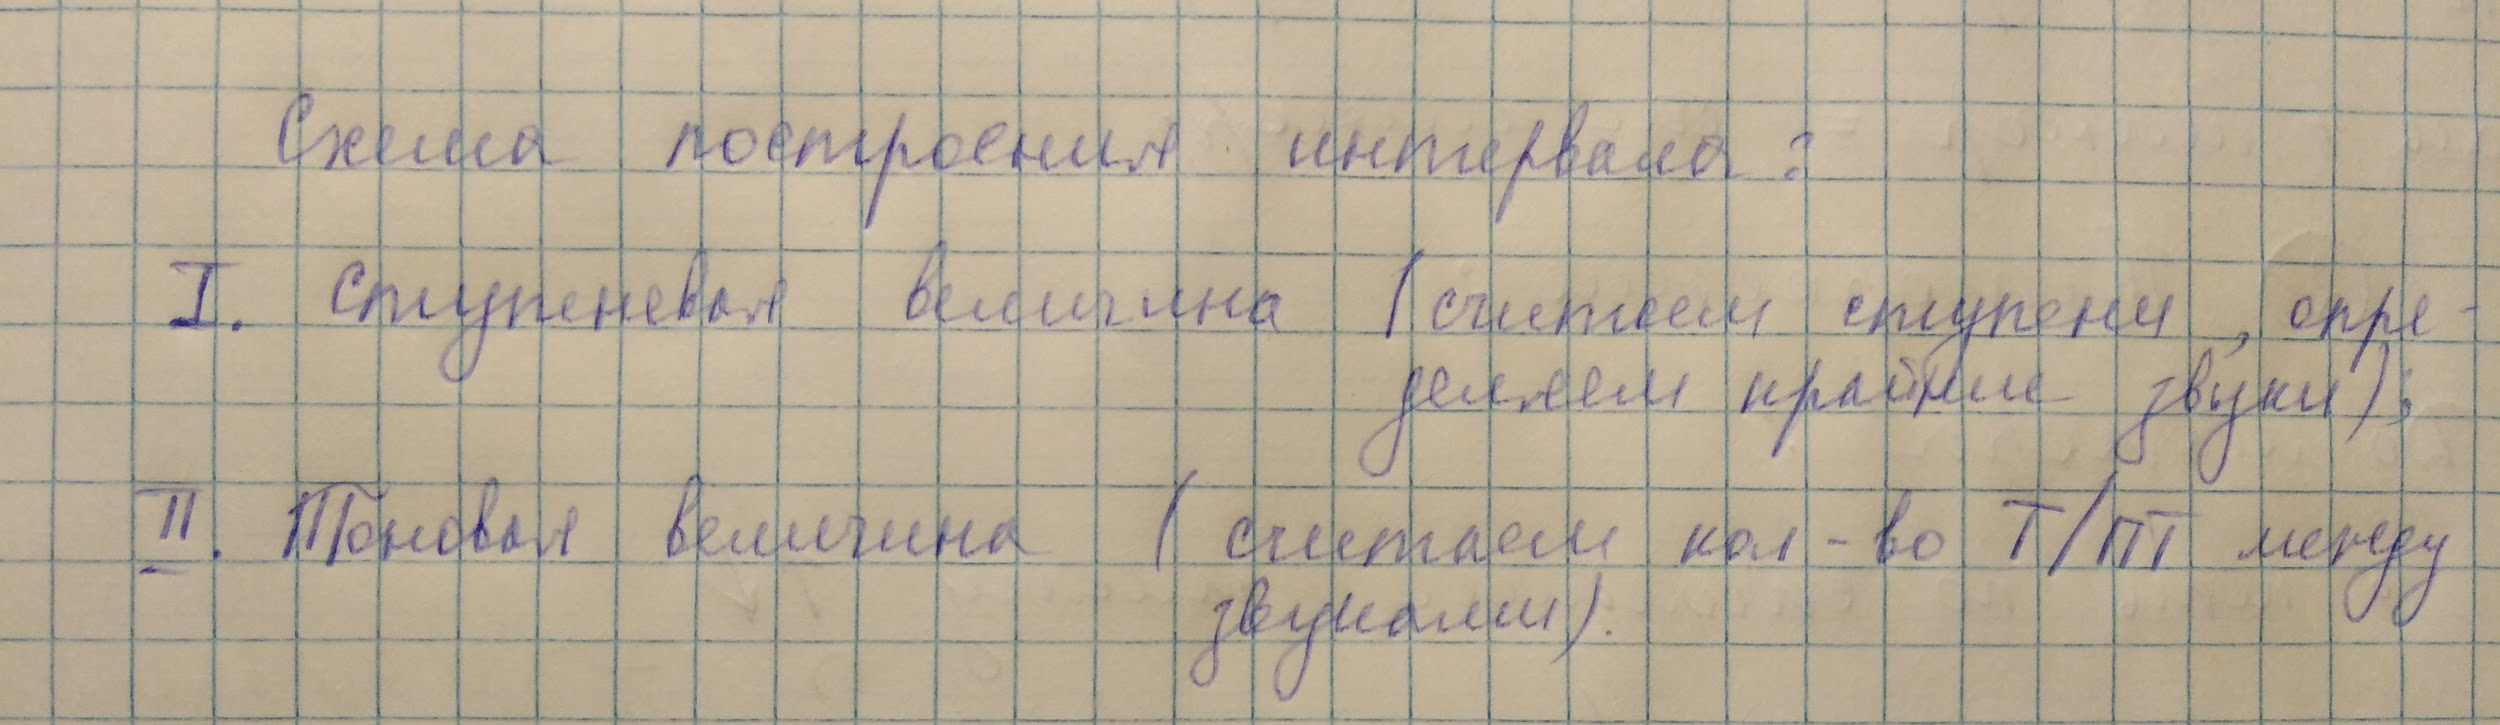 Схема построения интервала:
I. Ступеневая величина (считаем ступени, опре-
деляем крайние звуки);
II. Тоновая величина (считаем кол-во Т/ПТ между
звуками).